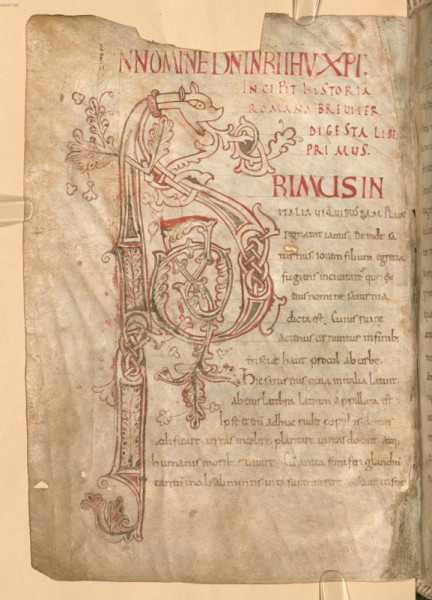 IN NOMINE DNI NRI IHU XPI.
INCIPIT HISTORIA
ROMANA BREVITER
DIGESTA LIBER
PRIMUS.
PRIMUS IN
ITALIA UT QUIBUSDAM PLACET
regnavit ianus. Deinde sa
turnus iovem filium e grecia
fugiens in civitate que de
eius nomine saturnia
dicta est; Cuius ruine
actenus cernuntur in finib;
tuscie haut procul ab urbe.
Hic saturnus quia in italia latuit
ab eius latebra latium appellata est
Ipse etenim adhuc rudes populos domos
edificare. terras incolere. plantare vineas docuit atq;
humanis moribus vivere; Cum antea semiferi glandium
tantummodo alimentis vitam sustentarent